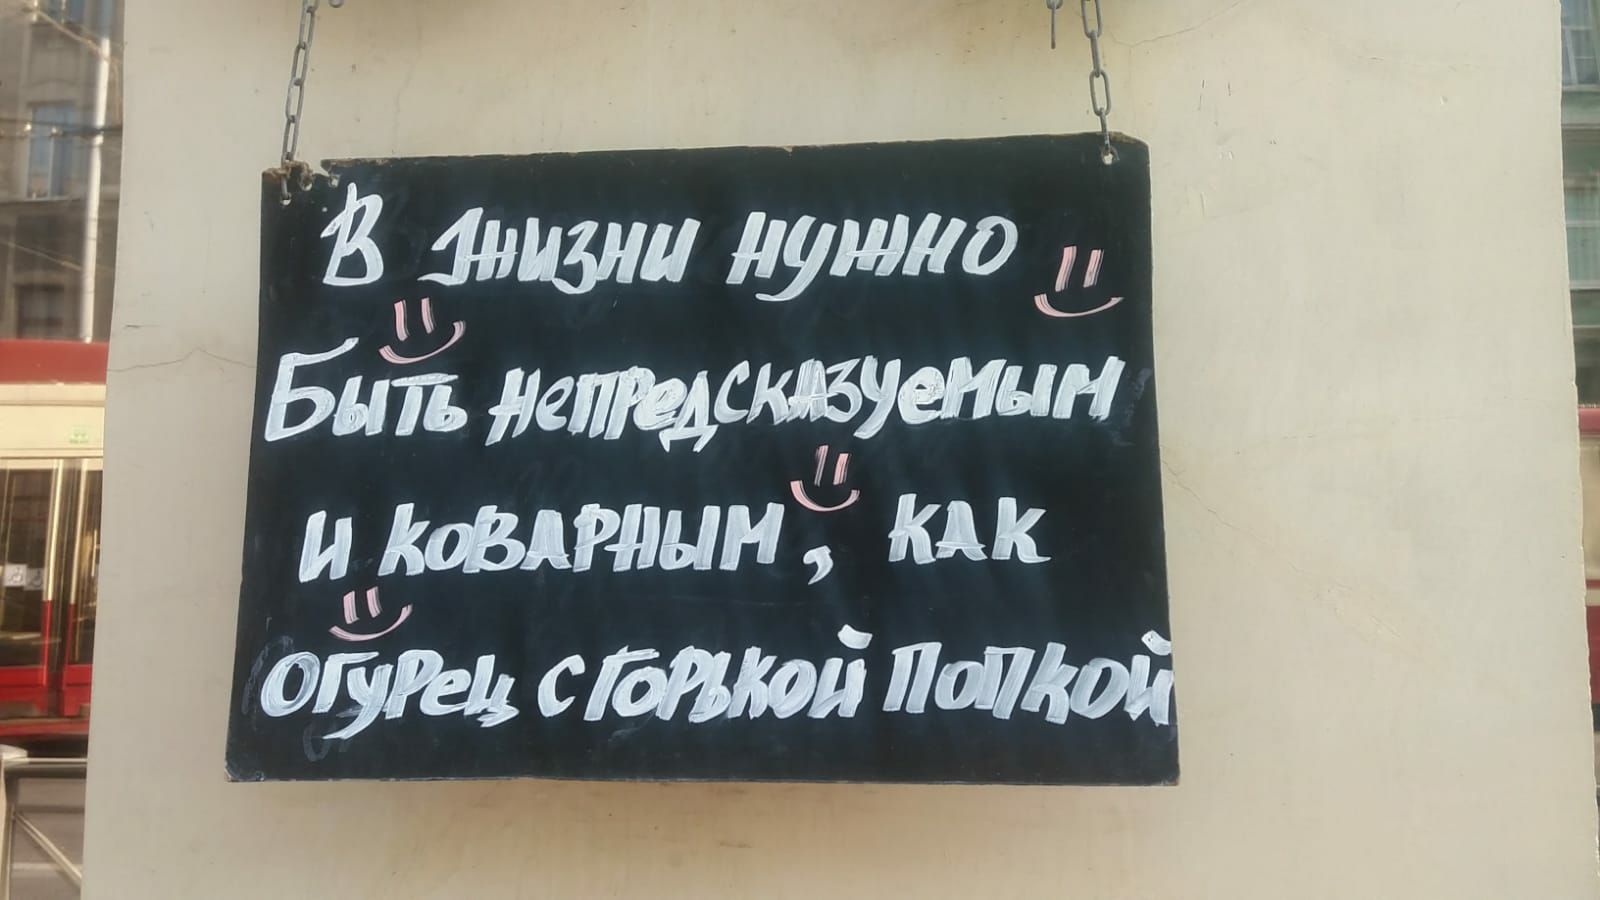 В жизни нужно
Быть непредсказуемым
и коварным, как
огурец с горькой попкой